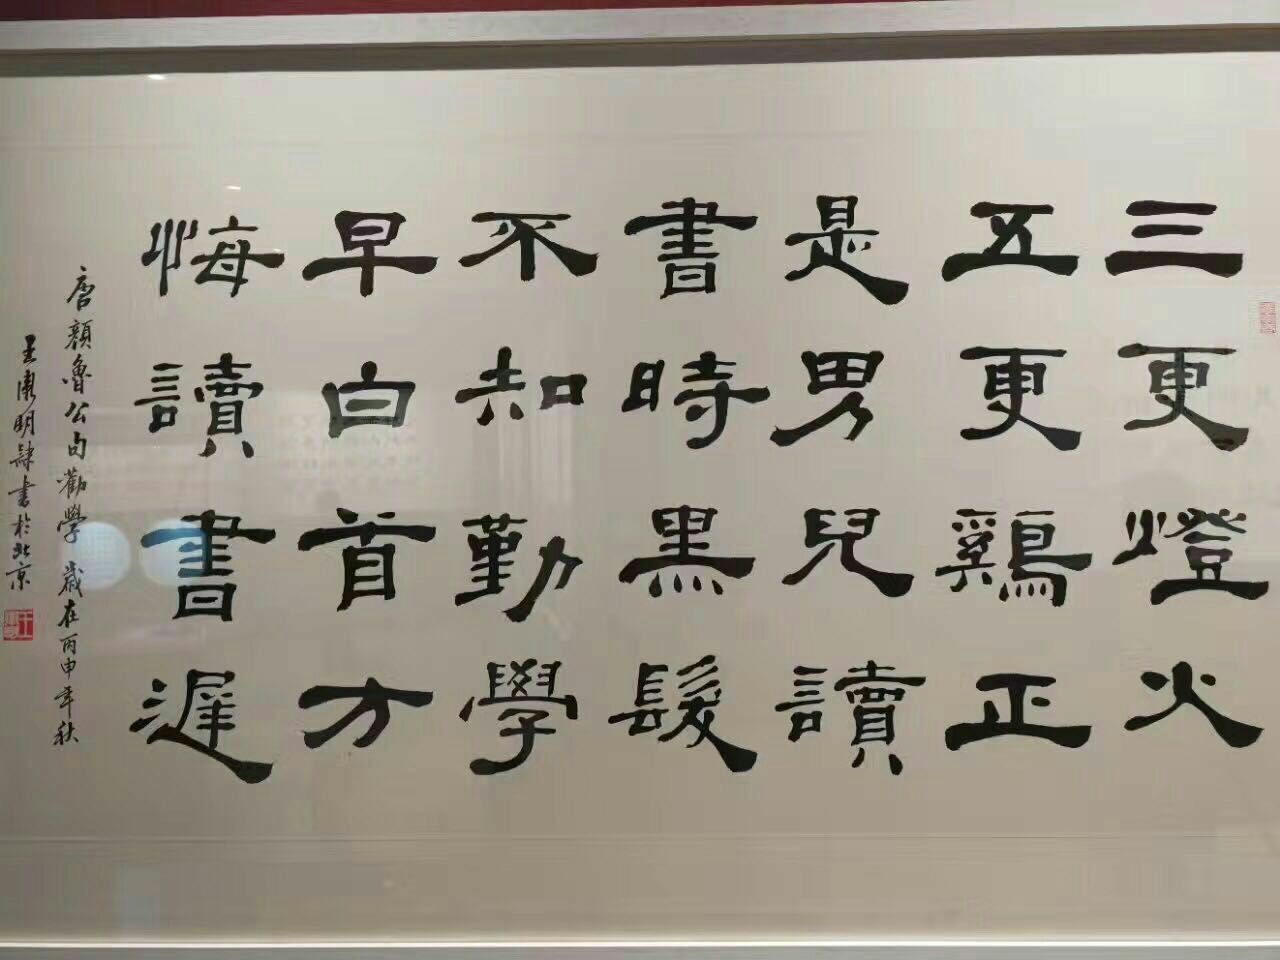 三更燈火
五更鷄正
是男兒讀
書時黑髮
不知勤學
早白首方
悔讀書遲
唐顏魯公句勸學 歲在丙申年秋
王明隸書於北京